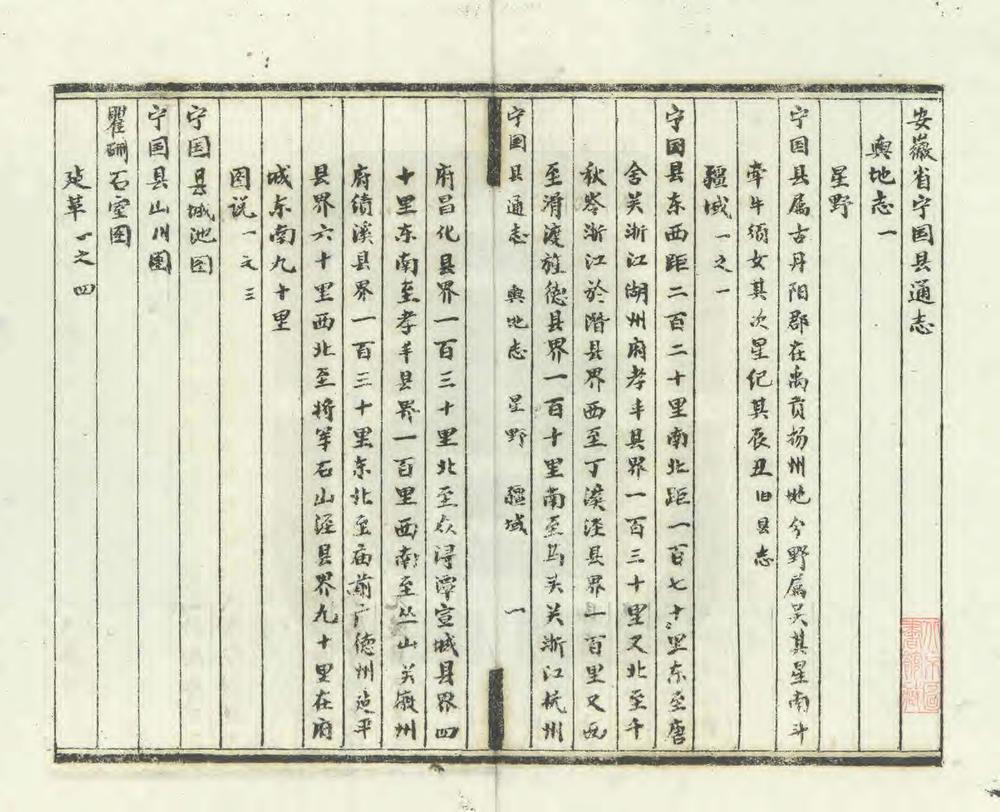 安徽省宁国县通志
舆地志一
星野
宁国县属古丹阳郡在禹贡扬州地分野属吴其星南斗
牵牛须女其次星纪其辰丑旧县志
疆域一之一
宁国县东西距二百二十里南北距一百七十里东至唐
舍关浙江湖州府孝丰县界一百三十里又北至千
秋岺浙江於潜县界西至丁溪泾县界一百里又西
至滑渡旌德县界一百十里南至马头关浙江杭州
宁国县通志 舆地志 星野 疆域 一
府昌化县界一百三十里北至浔潭宣城县界四
十里东南至孝丰县界一百里西南至丛山关徽州
府绩溪县界一百三十里东北至庙前广德州建平
县界六十里西北至将军石山泾县界九十里在府
城东南九十里
图说一之三
宁国县城池图
宁国县山川图
瞿硎石室图
沿革一之四